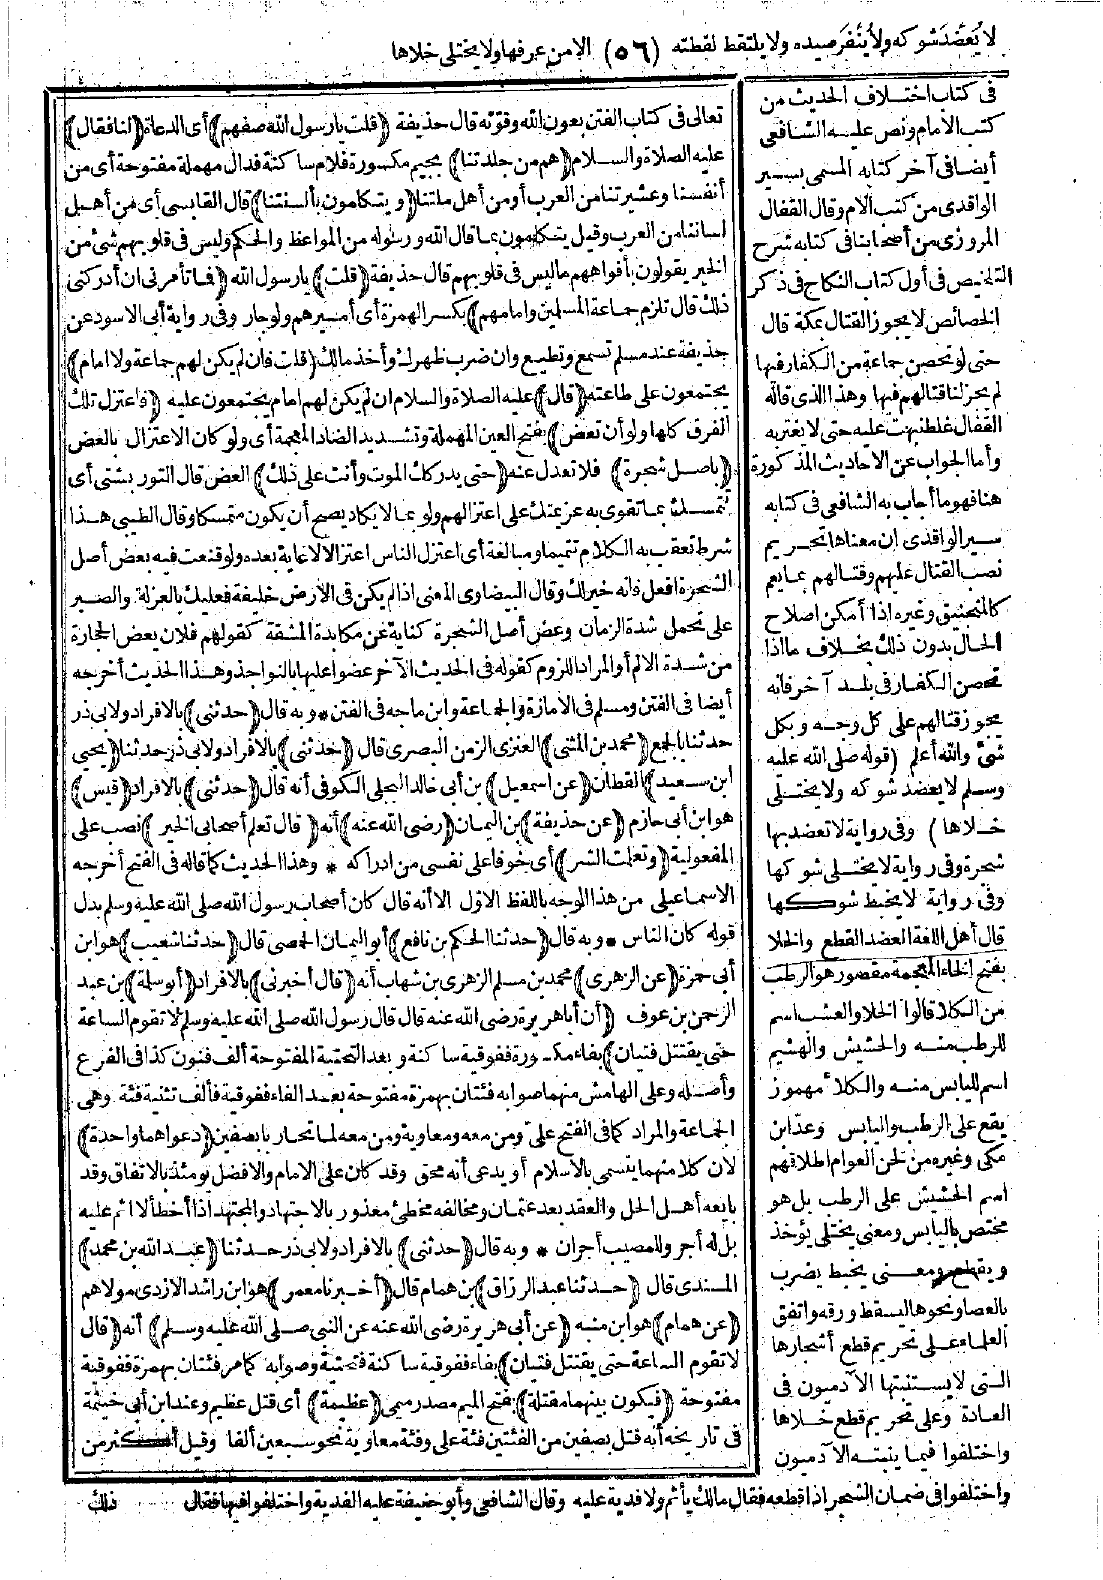 لا يُعضَد شوكه ولا يُنَفَّر صيده ولا يلتقط لقطته (٥٦) الا من عرفها ولا يختلى خلاها
فى كتاب اختلاف الحديث من
كتب الامام ونص عليه الشافعى
أيضا فى آخر كتابه المسمى بسير
الواقدى من كتب الام وقال القفال
المروزى من أصحابنا فى كتابه شرح
التلخيص فى أول كتاب النكاح فى ذكر
الخصائص لا يجوز القتال بمكة قال
حتى لو تحصن جماعة من الكفار فيها
لم يجز لنا قتالهم فيها وهذا الذى قاله
القفال غلط نبهت عليه حتى لا يغتر به
وأما الجواب عن الاحاديث المذكورة
هنا فهو ما أجاب به الشافعى فى كتابه
سير الواقدى ان معناها تحريم
نصب القتال عليهم وقتالهم بما يعم
كالمنجنيق وغيره اذا أمكن اصلاح
الحال بدون ذلك بخلاف ما اذا
تحصن الكفار فى بلد آخر فانه
يجوز قتالهم على كل وجه وبكل
شئ والله أعلم (قوله صلى الله عليه
وسلم لا يعضد شوكه ولا يختلى
خلاها) وفى رواية لا تعضد بها
شجرة وفى رواية لا يختلى شوكها
وفى رواية لا يخبط شوكها
قال أهل اللغة العضد القطع والخلا
بفتح الخاء المعجمة مقصور هو الرطب
من الكلا قالوا الخلا والعشب اسم
للرطب منه والحشيش والهشيم
اسم لليابس منه والكلأ مهموز
يقع على الرطب واليابس وعد ابن
مكى وغيره من لحن العوام اطلاقهم
اسم الحشيش على الرطب بل هو
مختص باليابس ومعنى يختلى يؤخذ
ويقطع ومعنى يخبط يضرب
بالعصا ونحوها ليسقط ورقه واتفق
العلماء على تحريم قطع أشجارها
التى لا يستنبتها الآدميون فى
العادة وعلى تحريم قطع خلاها
واختلفوا فيما ينبته الآدميون
تعالى فى كتاب الفتن بعون الله وقوته قال حذيفة (قلت يا رسول الله صفهم) أى الدعاة (لنا فقال)
عليه الصلاة والسلام (هم من جلدتنا) بجيم مكسورة فلام ساكنة فدال مهملة مفتوحة أى من
أنفسنا وعشيرتنا من العرب أو من أهل ملتنا (ويتكلمون بألسنتنا) قال القابسى أى من أهل
لساننا من العرب وقيل يتكلمون بما قال الله ورسوله من المواعظ والحكم وليس فى قلوبهم شئ من
الخير يقولون بأفواههم ما ليس فى قلوبهم قال حذيفة (قلت) يا رسول الله (فما تأمرنى ان أدركنى
ذلك قال تلزم جماعة المسلمين وامامهم) بكسر الهمزة أى أميرهم ولو جار وفى رواية أبى الاسود عن
حذيفة عند مسلم تسمع وتطيع وان ضرب ظهرك وأخذ مالك (قلت فان لم يكن لهم جماعة ولا امام)
يجتمعون على طاعته (قال) عليه الصلاة والسلام ان لم يكن لهم امام يجتمعون عليه (فاعتزل تلك
الفرق كلها ولو أن تعض) بفتح العين المهملة وتشديد الضاد المعجمة أى ولو كان الاعتزال بالعض
(بأصل شجرة) فلا تعدل عنه (حتى يدركك الموت وأنت على ذلك) العض قال التوربشتى أى
تتمسك بما تقوى به عزيمتك على اعتزالهم ولو بما لا يكاد يصح أن يكون متمسكا وقال الطيبى هذا
شرط تعقب به الكلام تتميما ومبالغة أى اعتزل الناس اعتزالا لا غاية بعده ولو قنعت فيه بعض أصل
الشجرة افعل فانه خير لك وقال البيضاوى المعنى اذا لم يكن فى الارض خليفة فعليك بالعزلة والصبر
على تحمل شدة الزمان وعض أصل الشجرة كناية عن مكابدة المشقة كقولهم فلان يعض الحجارة
من شدة الالم أو المراد اللزوم كقوله فى الحديث الآخر عضوا عليها بالنواجذ وهذا الحديث أخرجه
أيضا فى الفتن ومسلم فى الامارة والجماعة وابن ماجه فى الفتن * وبه قال (حدثنى) بالافراد ولابى ذر
حدثنا بالجمع (محمد بن المثنى) العنزى الزمن البصرى قال (حدثنى) بالافراد ولابى ذر حدثنا (يحيى
ابن سعيد) القطان (عن اسمعيل) بن أبى خالد البجلى الكوفى أنه قال (حدثنى) بالافراد (قيس)
هو ابن أبى حازم (عن حذيفة) بن اليمان (رضى الله عنه) أنه (قال تعلم أصحابى الخير) نصب على
المفعولية (وتعلمت الشر) أى خوفا على نفسى من ادراكه * وهذا الحديث كما قاله فى الفتح أخرجه
الاسماعيلى من هذا الوجه باللفظ الاول الا أنه قال كان أصحاب رسول الله صلى الله عليه وسلم بدل
قوله كان الناس * وبه قال (حدثنا الحكم بن نافع) أبو اليمان الحمصى قال (حدثنا شعيب) هو ابن
أبى حمزة (عن الزهرى) محمد بن مسلم الزهرى بن شهاب أنه (قال أخبرنى) بالافراد (أبو سلمة) بن عبد
الرحمن بن عوف (أن أبا هريرة رضى الله عنه قال قال رسول الله صلى الله عليه وسلم لا تقوم الساعة
حتى يقتتل فتيان) بفاء مكسورة ففوقية ساكنة وبعد التحتية المفتوحة ألف فنون كذا فى الفرع
وأصله وعلى الهامش منهما صوابه فئتان بهمزة مفتوحة بعد الفاء ففوقية فألف تثنية فئة وهى
الجماعة والمراد كما فى الفتح علىّ ومن معه ومعاوية ومن معه لما تحاربا بصفين (دعواهما واحدة)
لان كلا منهما يتسمى بالاسلام أو يدعى أنه محق وقد كان على الامام والافضل يومئذ بالاتفاق وقد
بايعه أهل الحل والعقد بعد عثمان ومخالفه مخطئ معذور بالاجتهاد والمجتهد اذا أخطأ لا اثم عليه
بل له أجر وللمصيب أجران * وبه قال (حدثنى) بالافراد ولابى ذر حدثنا (عبد الله بن محمد)
المسندى قال (حدثنا عبد الرزاق) بن همام قال (أخبرنا معمر) هو ابن راشد الازدى مولاهم
(عن همام) هو ابن منبه (عن أبى هريرة رضى الله عنه عن النبى صلى الله عليه وسلم) أنه (قال
لا تقوم الساعة حتى يقتتل فتيان) بفاء ففوقية ساكنة فتحتية وصوابه كما مر فئتان بهمزة ففوقية
مفتوحة (فيكون بينهما مقتلة) بفتح الميم مصدر ميمى (عظيمة) أى قتل عظيم وعند ابن أبى خيثمة
فى تاريخه أنه قتل بصفين من الفئتين فئة على وفئة معاوية نحو سبعين ألفا وقيل أكثر من
واختلفوا فى ضمان الشجر اذا قطعه فقال مالك يأثم ولا فدية عليه وقال الشافعى وأبو حنيفة عليه الفدية واختلفوا فيها فقال ذلك